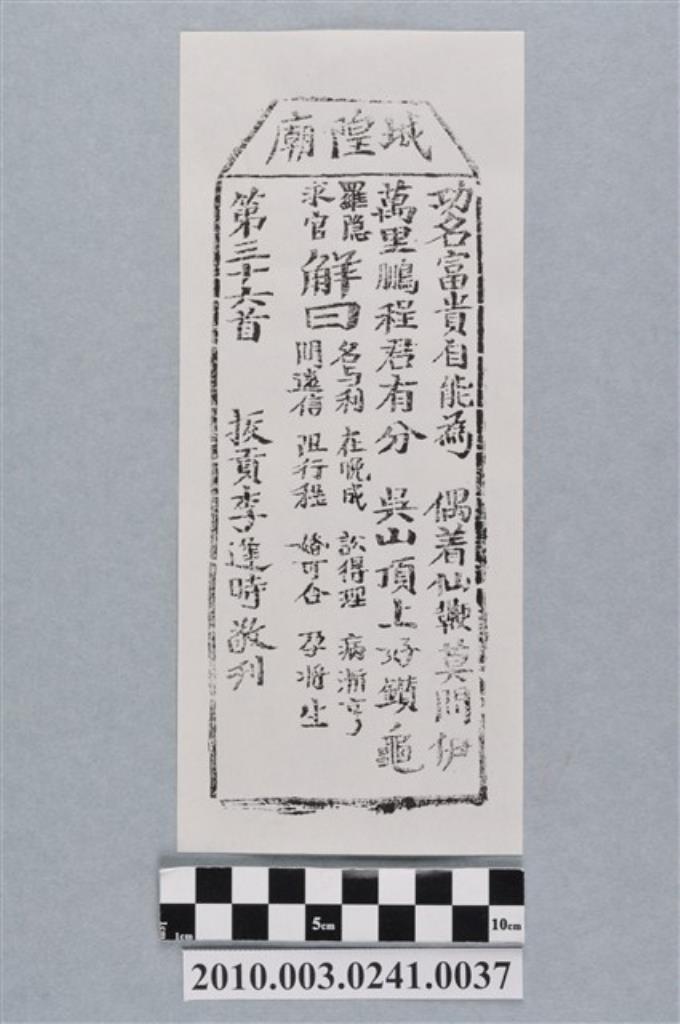 城隍廟
功名富貴自能為　偶着仙鞭莫問伊
萬里鵬程君有分　吳山頂上好鑽龜
羅隐
求官
解曰
名与利　在晚成　訟得理　病漸亨
問遠信　阻行程　婚可合　孕将生
第三十六首　拔貢李逢時敬刊
5cm
10cm
1cm
2010.003.0241.0037